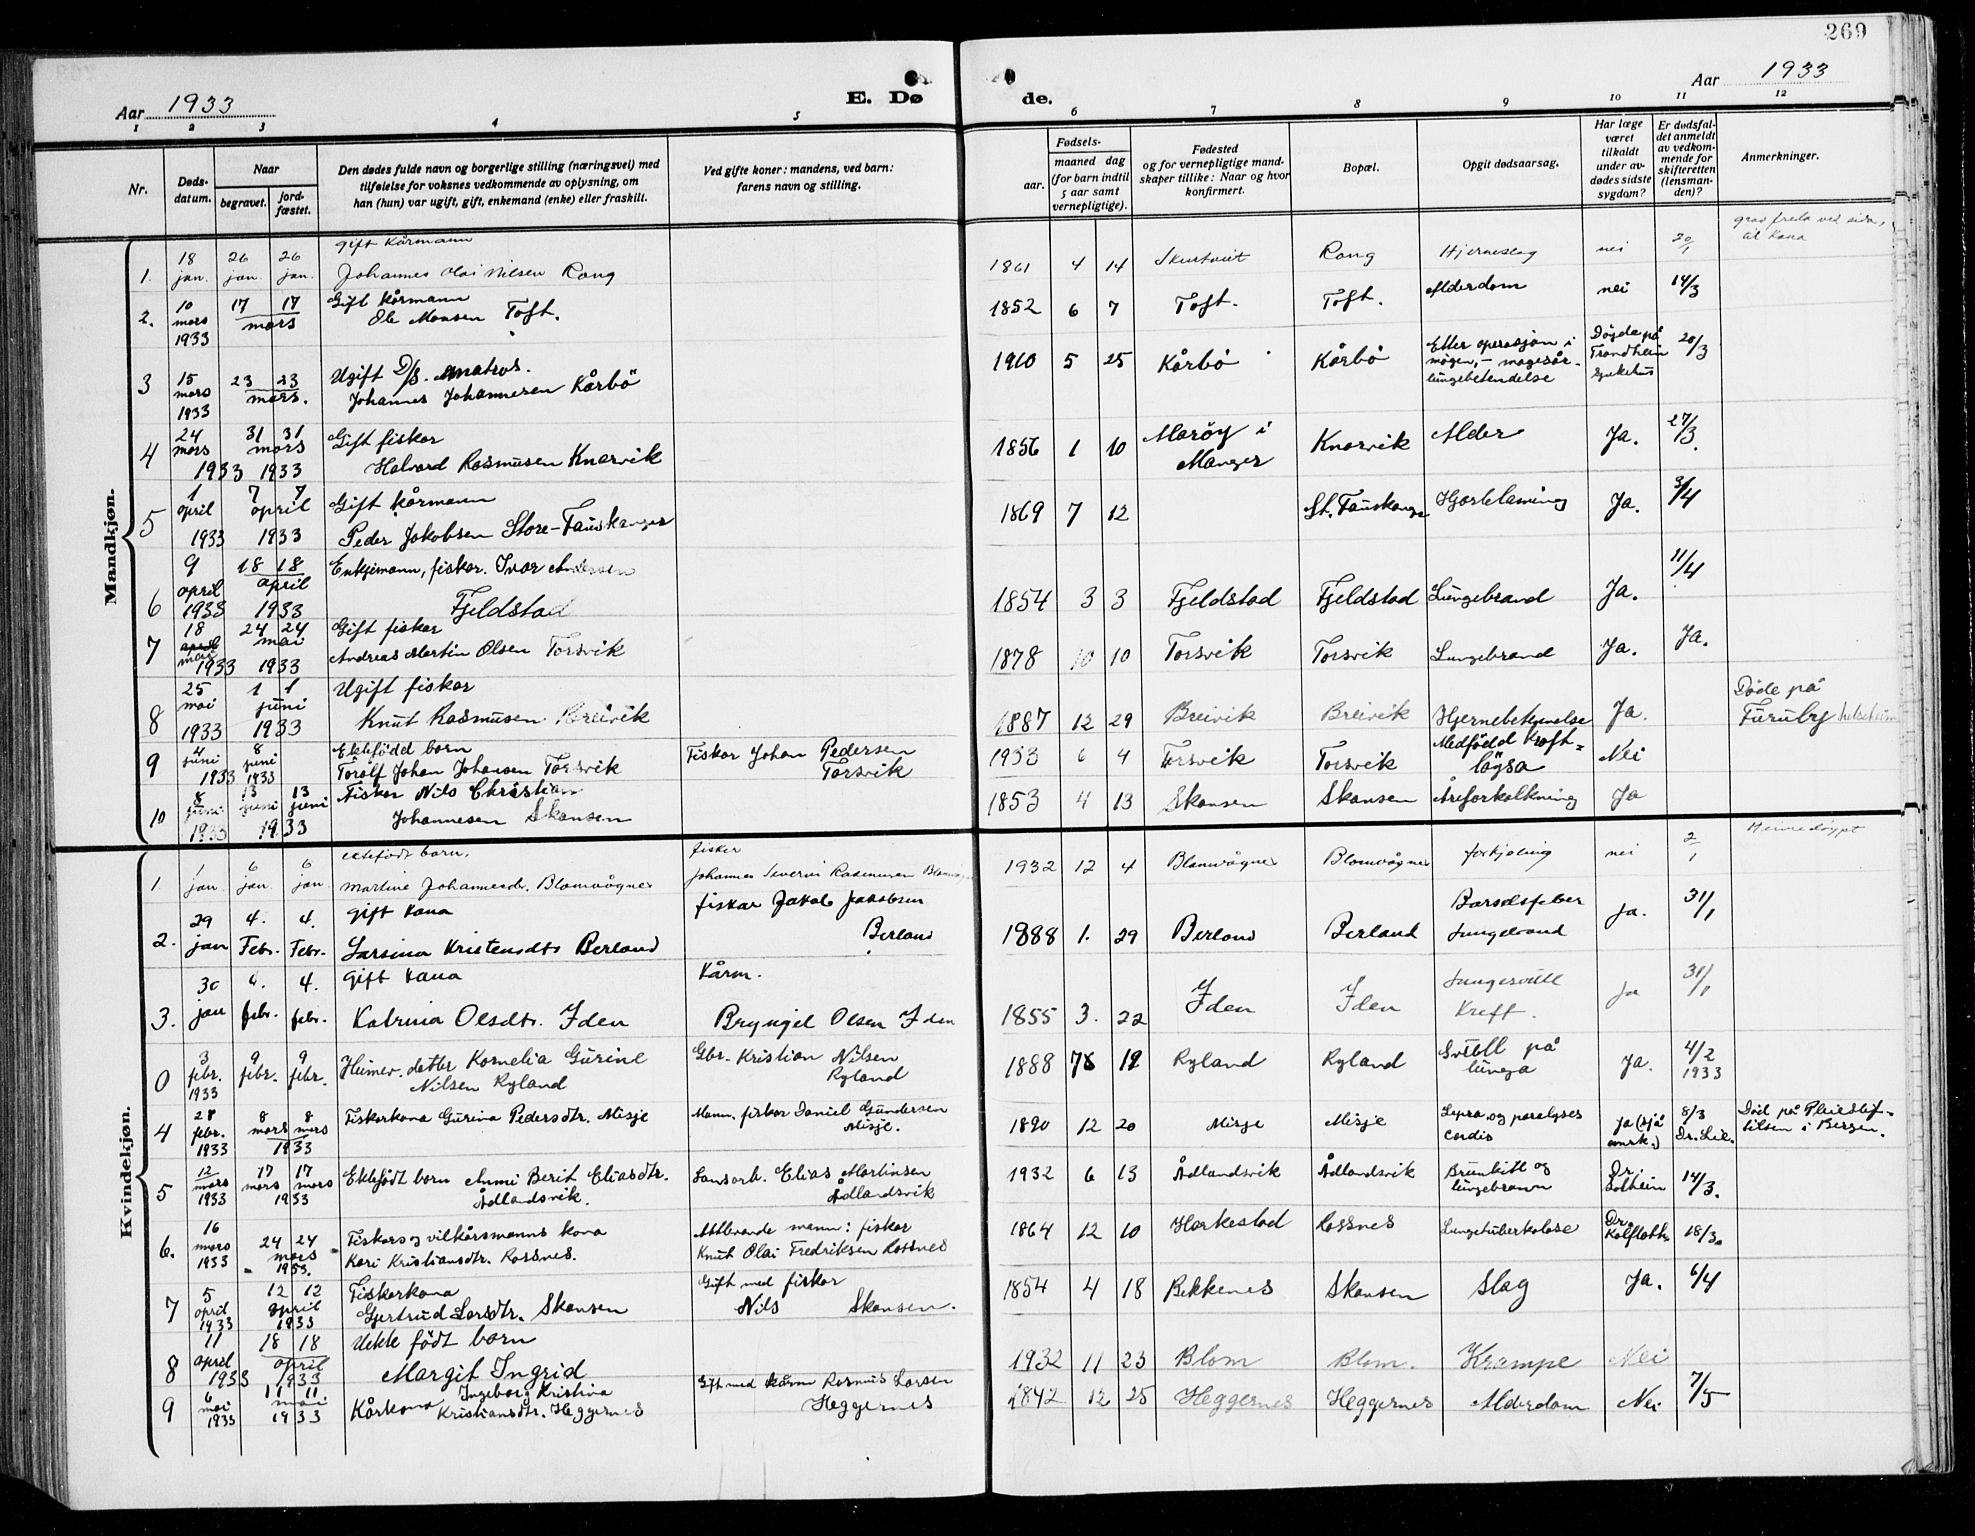 269
Aar 1933
E. Dø de.
Aar 1933
1 2 3 4 5 6 7 8 9 10 11 12
Nr.
Døds-
datum.
Naar
begravet.
jord-
fæstet.
Den dødes fulde navn og borgerlige stilling (næringsvei) med
tilføielse for voksnes vedkommende av oplysning, om
han (hun) var ugift, gift, enkemand (enke) eller fraskilt.
Ved gifte koner: mandens, ved barn:
farens navn og stilling.
Fødsels-
aar.
maaned dag
(for barn indtil
5 aar samt
vernepligtige).
Fødested
og for vernepligtige mand-
skaper tillike: Naar og hvor
konfirmert.
Bopæl.
Opgit dødsaarsag.
Har læge
været
tilkaldt
under av-
dødes sidste
sygdom?
Er dødsfal-
det anmeldt
av vedkom-
mende for
skifteretten
(lensman-
den)?
Anmerkninger.
Mandkjøn.
1. 18 jan. 26 jan. 26 jan. gift kårmann
Johannes Olai Nilsen Rong 1861 4 14 Skurtveit Rong Hjerneslag nei 20/1 til kona
2. 10 mars 1933 17 17 mars Gift kårmann
Ole Monsen Toft. 1852 6 7 Toft. Toft. Alderdom nei 14/3
3 15 mars 1933 23 23 mars. Ugift D/S. matros.
Johannes Johannesen Kårbö 1910 5 25 Kårbö Kårbö Etter operasjon i
magen, - magesår -
lungebetendelse Döyde på
Trondheim
sjukehus 20/3
4 24 mars 1933 31 31 mars 1933 Gift fiskar
Halvard Rasmusen Knarvik 1856 1 10 Marøy i
Manger Knarvik Alder Ja. 27/3.
5 1 april 1933 7 7 april 1933 Gift kårmann
Peder Jakobsen Store-Fauskanger 1869 7 12 St. Fauskanger Hjartelaming Ja. 3/4
6 9 april 1933 18 18 april 1933 Enkjemann, fiskar. Ivar Andersen
Fjeldstad 1854 3 3 Fjeldstad Fjeldstad Lungebrand Ja. 11/4
7 18 mai 1933 24 24 mai 1933 Gift fiskar
Andreas Martin Olsen Torsvik 1878 10 10 Torsvik Torsvik Lungebrand Ja. Ja.
8 25 mai 1933 1 1 juni 1933 Ugift fiskar
Knut Rasmusen Breivik 1887 12 29 Breivik Breivik Ja. Döde på
Furuby
9 4 juni 1933 8 juni 1933 Ektefödd barn
Torolf Johan Johansen Torsvik Fiskar Johan Pedersen
Torsvik 1933 6 4 Torsvik Torsvik Medfödd kraft=
løysa Nei
10 8 juni 1933 13 juni 13 juni 1933 Fiskar Nils Christian
Johannesen Skansen 1853 4 13 Skansen Skansen Åreforkalkning Ja
Kvindekjøn.
1. 1 jan. 6 jan. 6 jan. ektefödt barn.
Martine Johannesdr. Blomvågnes fisker
Johannes Severin Rasmusen 1932 12 4 Blomvågnes Blomvågnes forkjöling nei 2/1 Heimedöypt
2. 29 jan 4. Febr. 4. Febr. gift kona
Larsina Kristensdtr Berland fiskar Jakob Jakobsen
Berland 1888 1. 29 Berland Berland Barselsfeber
Lungebrand Ja. 31/1
3. 30 jan 4. febr. 4. febr. gift kona
Katrina Olsdtr. Iden Kårm.
Bryngel Olsen Iden 1855 3. 22 Iden Iden Lungesvull
Kreft. Ja 31/1
0 3 febr. 1933 9 febr. 9 febr. Heimev. detter Kornelia Gurine
Nilsen Ryland Gbr. Kristian Nilsen
Ryland 1888 19 Ryland Ryland Svull på
lunga Ja. 4/2 1933
4 28 febr. 1933 8 mars 8 mars 1933 Fiskarkona Gurina Pedersdtr. Misje Mann. fiskar Daniel Gundersen
Misje. 1890 12 20 Misje Misje Lepra og paralyses
cordis Ja (sjå
amrk.) 8/3
Dr. Lie. Död på Pleiestif-
telsen i Bergen.
5 12 mars 1933 17 mars 17 mars 1933 Ektefödt barn Anni Berit Eliasdtr.
Ådlandsvik. Lausarb. Elias Martinsen
Ådlandsvik 1932 6 13 Ådlandsvik Ådlandsvik Brunkitt og
lungebrann Dr.
Solheim 14/3.
6. 16 mars 1933 24 24 mars 1933. Fiskars og vilkårsmanns kona
Kari Kristiansdtr. Rossnes. Attlevande mann: fiskar
Knut Olai Fredriksen Rossnes 1864 12 10 Harkestad Rossnes Lungetuberkolose Dr.
Kolflath. 18/3.
7 5 april 1933 12 12 april 1933 Fiskarkona
Gjertrud Larsdtr. Skansen Gift med fiskar
Nils Skansen. 1854 4 18 Bekkenes Skansen Slag Ja. 6/4
8 11 april 1933 18 18 april 1933 Uekte födt barn
Margit Ingrid 1932 11 23 Blom Blom. Krampe Nei
9 6 mai 1933 11 11. mai 1933 Ingeborg Kristina
Kårkona Kristiansdtr. Heggernes Gift med kårm Rasmus Larsen
Heggernes 1842 12 25 Heggernes Heggernes Alderdom Nei 7/5